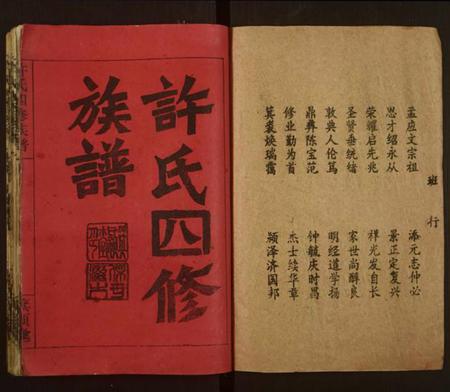 許氏四修
族譜
班行
孟应文宗祖
添元志仲必
思才绍永从
景正定复兴
荣耀启先兆
祥光发自长
圣贤垂统绪
家世尚醇良
敦典人伦笃
明经道学扬
鼎彝陈宝范
钟毓庆时昌
修业勤为首
杰士续华章
箕裘焕瑞霭
颍泽济国邦